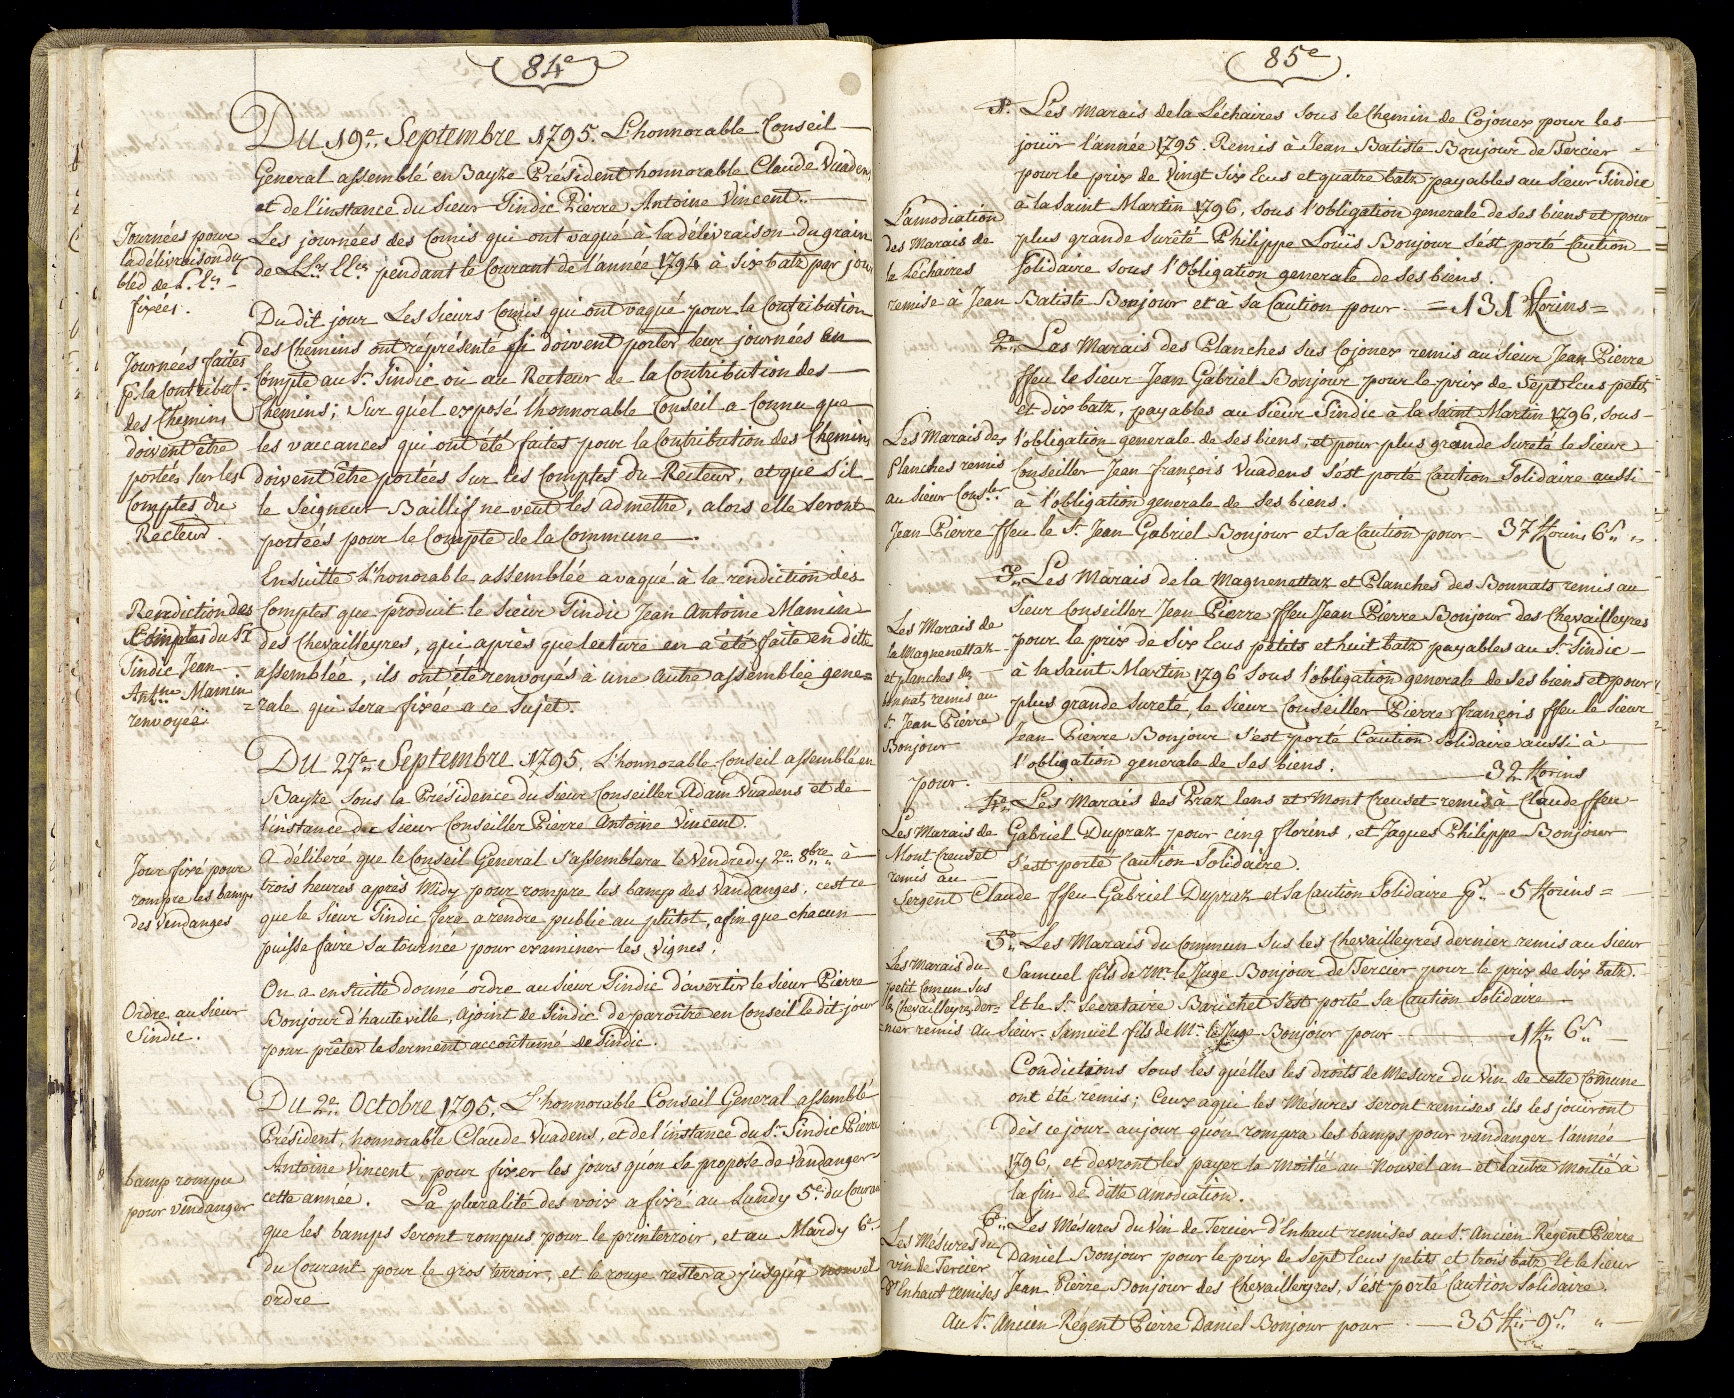 84e
Du 19e Septembre 1795. L'honnorable Conseil
General assemblé en Bayze Président honnorable Claude Vuadens
et de l'instance du Sieur Sindic Pierre Antoine Vincent.
Journées pour
la délivraison du
bled de L.L.
fixées.
Les journées des Comis qui ont vaqué à la délivraison du grain
de LL. EE. pendant le Courant de l'année 1794 à six batz par jour
Du dit jour Les Sieurs Comis qui ont vaqué pour la Contribution
Journées faites
pr. la Contribut.
des Chemins
doivent être
portées sur les
Comptes du
Recteur.
des Chemins ont représenté si doivent porter leur journées en
Compte au Sr. Sindic ou au Recteur de la Contribution des
Chemins; Sur quél exposé l'honnorable Conseil a Connu que
les vaccances qui ont été faites pour la Contribution des Chemins
doivent être portées sur les Comptes du Recteur, et que s'il
le Seigneur Baillif ne veut les admettre, alors elle seront
portées pour le Compte de la Commune.
Ensuitte L'honorable assemblée a vaqué à la rendiction des
Rendiction des
Comptes du Sr.
Sindic Jean
Antne. Mamin
renvoyée.
Comptes que produit le Sieur Sindic Jean Antoine Mamin
des Chevailleyres, qui après que lecture en a été faite en ditte
assemblée, ils ont été renvoyés à une autre assemblée gene=
=rale qui sera fixée a ce sujet.
Du 27e Septembre 1795. L'honnorable Conseil assemblé en
Bayze sous la Présidence du Sieur Conseiller Adam Vuadens et de
l'instance du Sieur Conseiller Pierre Antoine Vincent.
Jour fixé pour
rompre les bamps
des Vendanges
A déliberé que le Conseil General s'assemblera le Vendredy 2e 8bre à
trois heures après Midy pour rompre les bamps des Vandanges, cest ce
que le Sieur Sindic fera a rendre publie au plûtot, afin que chacun
puisse faire sa tournée pour examiner les Vignes.
Ordre au Sieur
Sindic.
On a ensuitte donné ordre au Sieur Sindic d'avertir le Sieur Pierre
Bonjour d'hauteville, ajoint de Sindic de paroître en Conseil le dit jour
pour prêter le Serment accoûtumé de Sindic.
Du 2e Octobre 1795. L'honnorable Conseil General assemblé
Président, honnorable Claude Vuadens, et de l'instance du Sr. Sindic Pierre
bamp rompu
pour vendanger
Antoine Vincent, pour fixer les jours qu'on se propose de Vandanger
cette année. La pluralité des voix a fixé au Lundy 5e du Courant
que les bamps seront rompus pour le printerroir, et au Mardy 6e
du Courant pour le gros terroir, et le rouge restera jusqu'à nouvel
ordre
85e
1o. Les Marais de la Léchaires sous le Chemin de Cojonex pour les
joüir l'année 1795. Remis à Jean Batiste Bonjour de Tercier
pour le prix de Vingt Six Ecus et quatre batz payables au Sieur Sindic
à la Saint Martin 1796, sous l'obligation generale de ses biens et pour
L'amodiation
des Marais de
la Léchaires
plus grande surêté Philippe Loüis Bonjour s'est porté Caution
Solidaire sous l'Obligation generale de ses biens.
remise à Jean Batiste Bonjour et à sa Caution pour = 131 florins =
2o. Les Marais des Planches sus Cojonex remis au Sieur Jean Pierre
ffeu le Sieur Jean Gabriel Bonjour pour le prix de Sept Ecus petits
et dix batz, payables au Sieur Sindic à la Saint Martin 1796, sous
Les Marais des
Planches remis
au Sieur Consler.
l'obligation generale de ses biens, et pour plus grande sureté le Sieur
Conseiller Jean françois Vuadens s'est porté Caution Solidaire aussi
à l'obligation generale de ses biens.
Jean Pierre ffeu le Sr. Jean Gabriel Bonjour et sa Caution pour 37 florins 6 s.
3o. Les Marais de la Magnenettaz et Planches des Bonnats remis au
Sieur Conseiller Jean Pierre ffeu Jean Pierre Bonjour des Chevailleyres
Les Marais de
la Magnenettaz
et planches de
bonnat remis au
Sr. Jean Pierre
Bonjour
pour.
pour le prix de Six Ecus petits et huit batz payables au Sr. Sindic
à la Saint Martin 1796 sous l'obligation generale de ses biens et pour
plus grande sureté, le Sieur Conseiller Pierre françois ffeu le Sieur
Jean Pierre Bonjour s'est porté Caution Solidaire aussi à
l'obligation generale de ses biens. 32 florins
4o. Les Marais des Praz lens et Mont Creuset remis à Claude ffeu
Les Marais de
Mont Creuset
remis au
Gabriel Dupraz pour cinq florins, et Jaques Philippe Bonjour
s'est porté Caution Solidaire.
Sergent Claude ffeu Gabriel Dupraz et sa Caution Solidaire pr. 5 florins =
5o. Les Marais du Commun sus les Chevailleyres dernier remis au Sieur
Les Marais du
petit Comun sus
les Chevailleyres der=
Samuel fils de Mr. le Juge Bonjour de Tercier pour le prix de six batz.
Et le Sr. Secretaire Barichet s'est porté sa Caution Solidaire
=nier remis au Sieur Samuel fils de Mr. le Juge Bonjour pour 1 fl. 6 s.
Condictions sous les quélles les droits de Mesure du Vin de cette Commune
ont été remis; Ceux a qui les Mesures seront remises ils les joüiront
dès ce jour au jour qu'on rompra les bamps pour vandanger l'année
1796, et devront les payer la moitié au Nouvel an et l'autre moitié à
la fin de ditte amodiation.
6o. Les Mésures du Vin de Tercier d'Enhaut remises au Sr. Ancien Régent Pierre
Les Mésures du
vin de Tercier
d'Enhaut remises
Daniel Bonjour pour le prix de sept Ecus petits et trois batz Et le Sieur
Jean Pierre Bonjour des Chevailleyres, s'est porté Caution Solidaire.
Au Sr. Ancien Régent Pierre Daniel Bonjour pour 35 fl. 9 s.